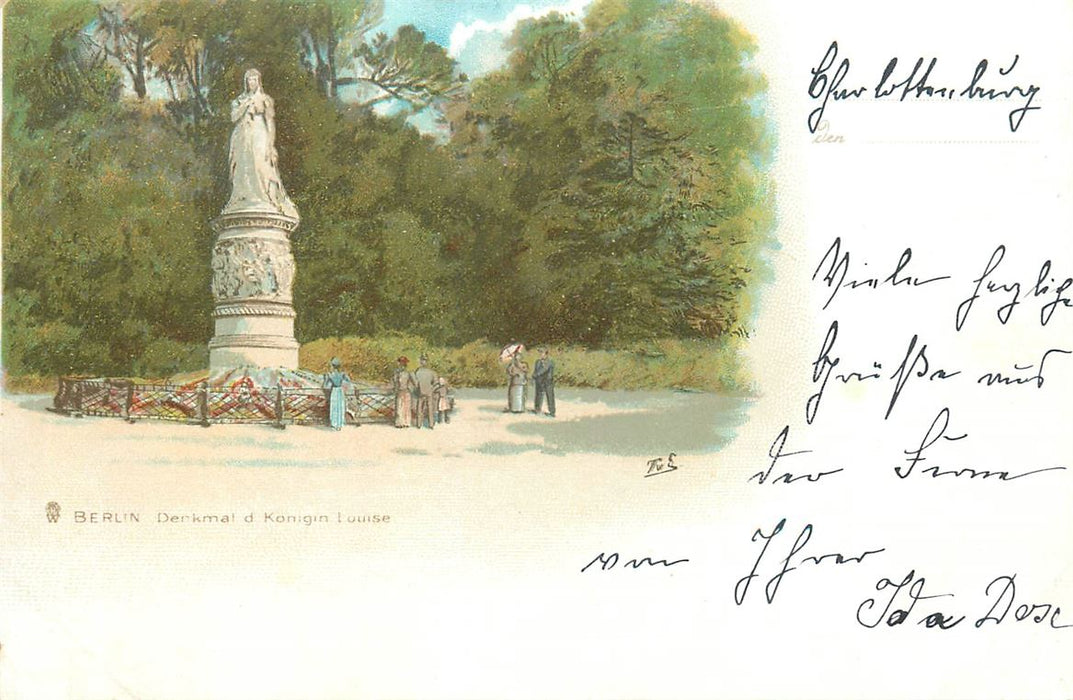 Charlottenburg
Den
Viele herzliche
Grüße aus
der Ferne
von Ihrer
Ida
TvE
BERLIN Denkmal d Königin Louise